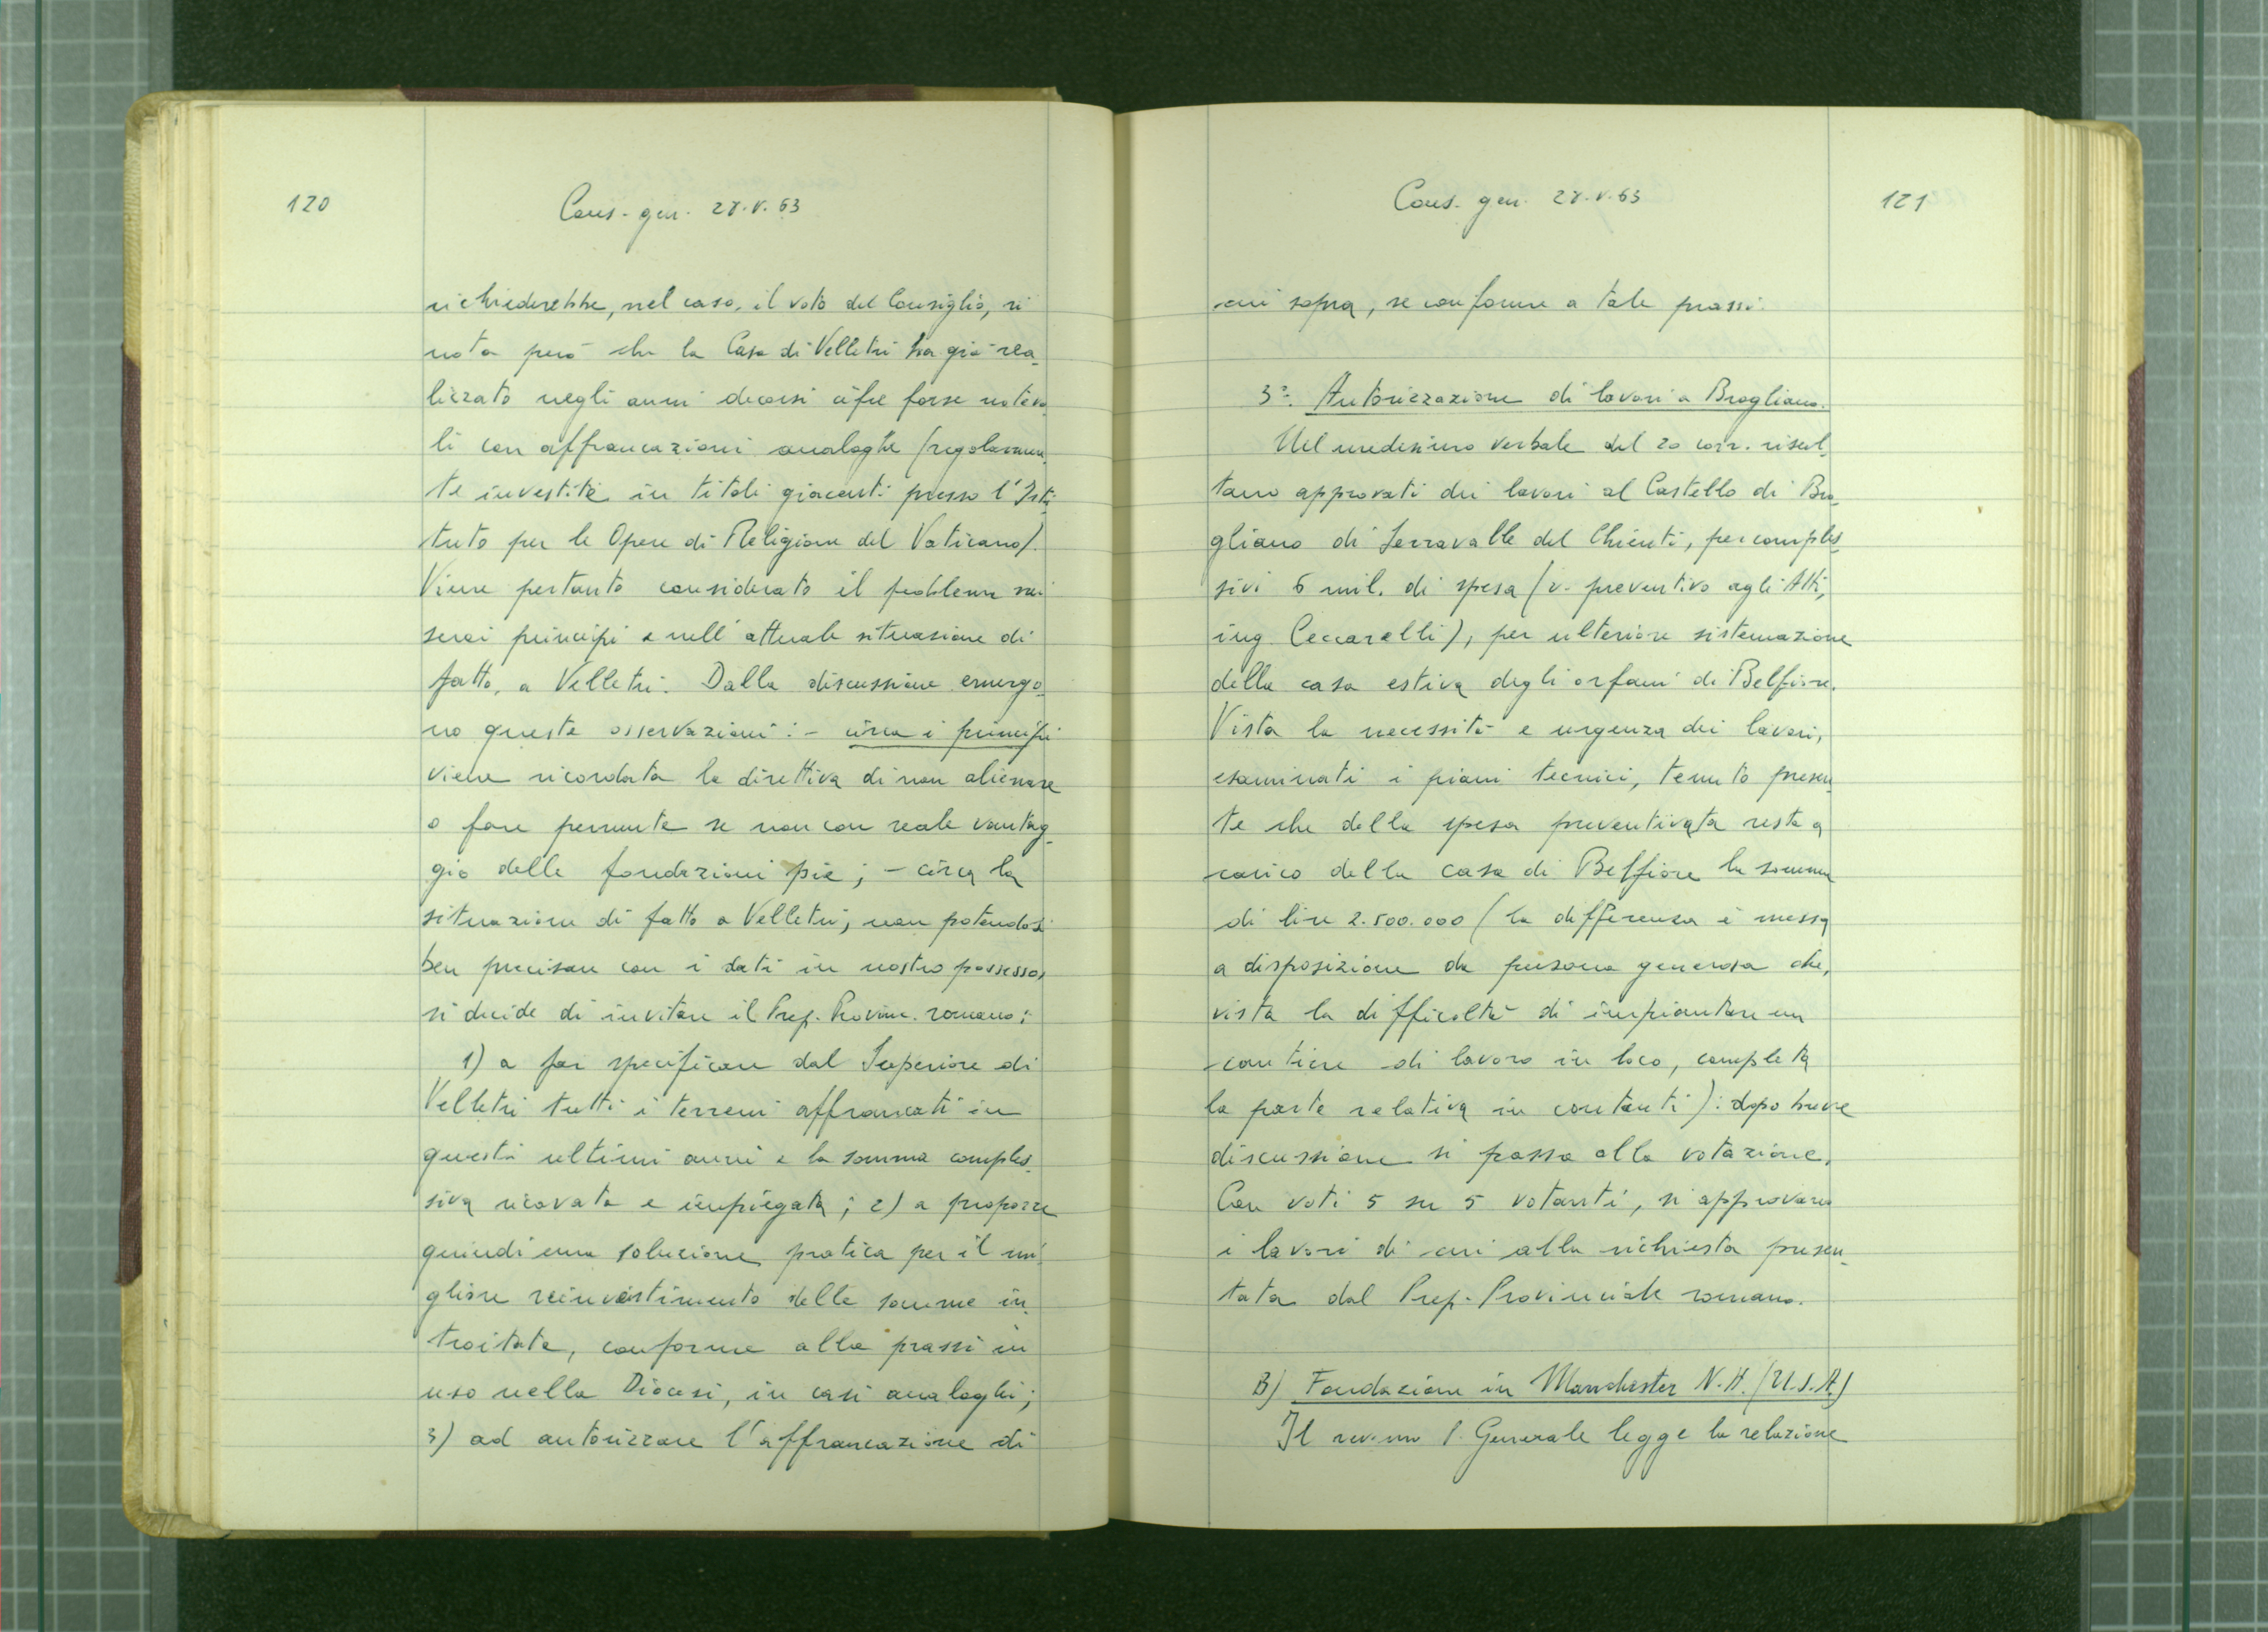 120
Cons. gen. 28.V.63
richiederebbe, nel caso, il voto del Consiglio, si
nota però che la Casa di Velletri ha già rea_
lizzato negli anni decorsi cifre forse notevo_
li con affrancazioni analoghe (regolarmen_
te investite in titoli giacenti presso l'Isti_
tuto per le Opere di Religione del Vaticano).
Viene pertanto considerato il problema nei
suoi principi e nell'attuale situazione di
fatto, a Velletri. Dalla discussione emergo_
no queste osservazioni: - circa i principi
viene ricordata la direttiva di non alienare
o fare permute se non con reale vantag_
gio delle fondazioni pie; - circa la
situazione di fatto a Velletri, non potendosi
ben precisare con i dati in nostro possesso,
si decide di invitare il Prep. Provinc. romano:
1) a far specificare dal Superiore di
Velletri tutti i terreni affrancati in
questi ultimi anni e la somma comples_
siva ricavata e impiegata; 2) a proporre
quindi una soluzione pratica per il mi_
gliore reinvestimento delle somme in_
troitate, conforme alla prassi in
uso nella Diocesi, in casi analoghi;
3) ad autorizzare l'affrancazione di
Cons. gen. 28.V.63
121
cui sopra, se conforme a tale prassi.
3°. Autorizzazione di lavori a Brogliano.
Nel medesimo verbale del 20 corr. risul_
tano approvati dei lavori al Castello di Bro_
gliano di Serravalle del Chienti, per comples_
sivi 6 mil. di spesa (v. preventivo agli Atti,
ing. Ceccarelli), per ulteriore sistemazione
della casa estiva degli orfani di Belfiore.
Vista la necessità e urgenza dei lavori,
esaminati i piani tecnici, tenuto presen_
te che della spesa preventivata resta a
carico della casa di Belfiore la somma
di lire 2.500.000 (la differenza è messa
a disposizione da persona generosa che,
vista la difficoltà di impiantare un
cantiere di lavoro in loco, completa
la parte relativa in contanti): dopo breve
discussione si passa alla votazione.
Con voti 5 su 5 votanti, si approvano
i lavori di cui alla richiesta presen_
tata dal Prep. Provinciale romano.
B) Fondazione in Manchester N.H. (U.S.A.)
Il rev.mo P. Generale legge la relazione